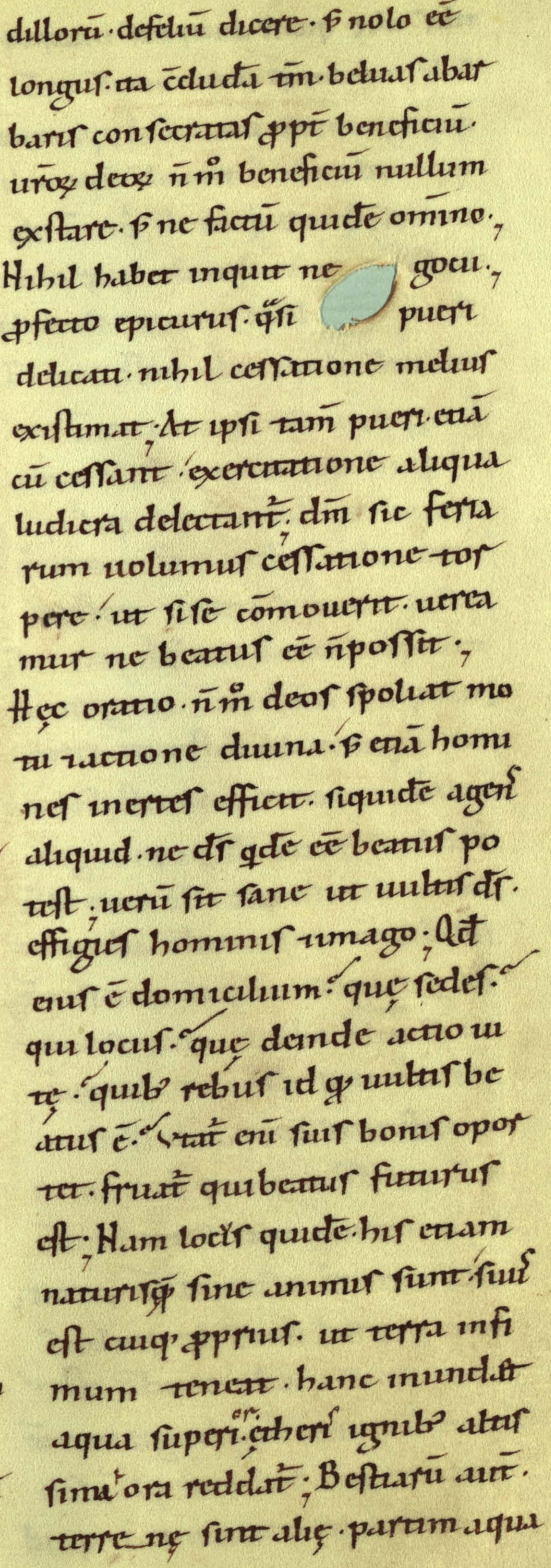 dillorū · defeliū dicere · s̄ nolo eē
longus · ita c̄cludā tm̄ · beluas a bar
baris consecratas ꝓpt̄ beneficiū ·
ur̄oꝝ deoꝝ n̄ m̊ beneficiū nullum
exstare · s̄ ne factū quidē om̄ino ·,
Nihil habet inquit ne gocii ·,
ꝓfecto epicurus · qͣsi pueri
delicati · nihil cessatione melius
existimat ·, At ipsi tam̄ pueri · etiā
cū cessant · exercitatione aliqua
ludicra delectant᷑ ·, dm̄ sic feria
rum uolumus cessatione tor
pere · ut si se cōmouerit · uerea
mur ne beatus eē n̄ possit ·,
Hęc oratio · n̄ m̊ deos spoliat mo
tu ⁊ actione diuina · s̄ etiā homi
nes inertes efficit · siquidē agens
aliquid · ne ds̄ qͥdē eē beatus po
test ·, uerū sit sane ut uultis ds̄ ·
effigies hominis ⁊ imago ·, Qđ
eius ē domicilium · quę sedes ·
qui locus · quę deinde actio ui
tę · quibꝰ rebus id qꝫ uultis be
atus ē · Vtat᷑ eni suis bonis opor
tet · fruat᷑ qui beatus futurus
est ·, Nam locis quidē · his etiam
naturis quę sine animis sunt · suus
est cuiqꝫ ꝓprius · ut terra infi
mum teneat · hanc inundet
aqua superior · ętheri ignibꝰ altis
sima ora reddat᷑ ·, Bestiarū aut̄ ·
terrenę sint alię · partim aqua